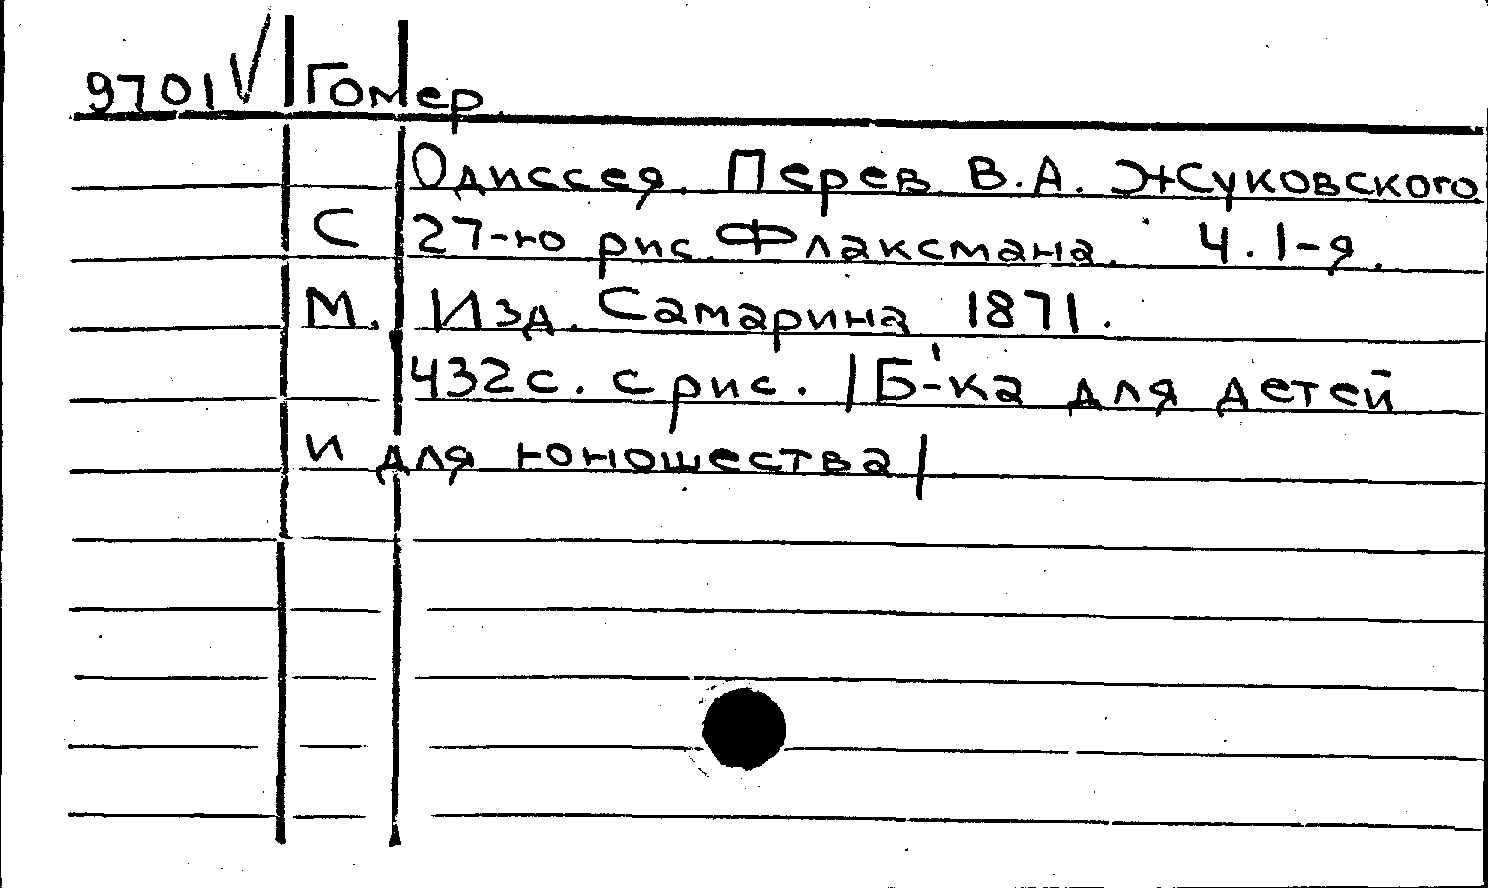 9701 √ Гомер
Одиссея. Перев. В.А. Жуковского
С 27-ю рис. Флаксмана. Ч. I-я.
М. Изд. Самарина 1871.
432с. с рис. /Б-ка для детей
и для юношества/